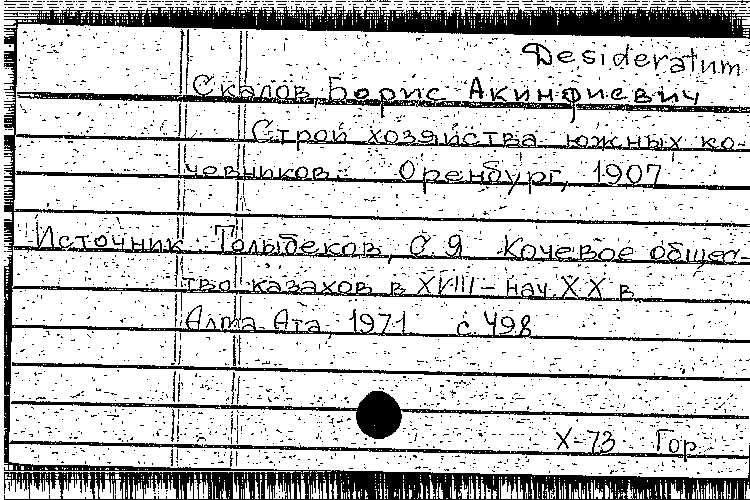 Desideratum
Скалов, Борис Акинфиевич
Строй хозяйства южных ко-
чевников. Оренбург, 1907
Источник Толыбеков, С. Я Кочевое общес-
тво казахов в XVIII – нач. XX в
Алма-Ата, 1971 с. 498
X-73 Гор